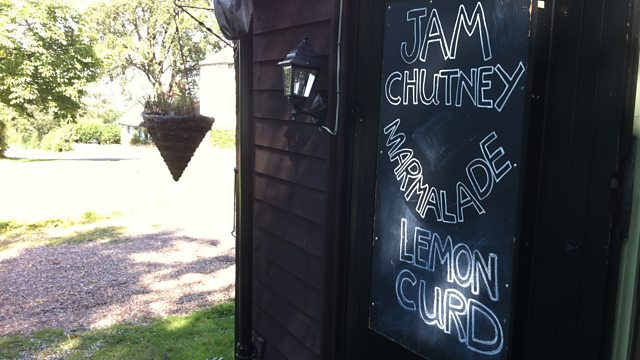 JAM
CHUTNEY
MARMALADE
LEMON
CURD